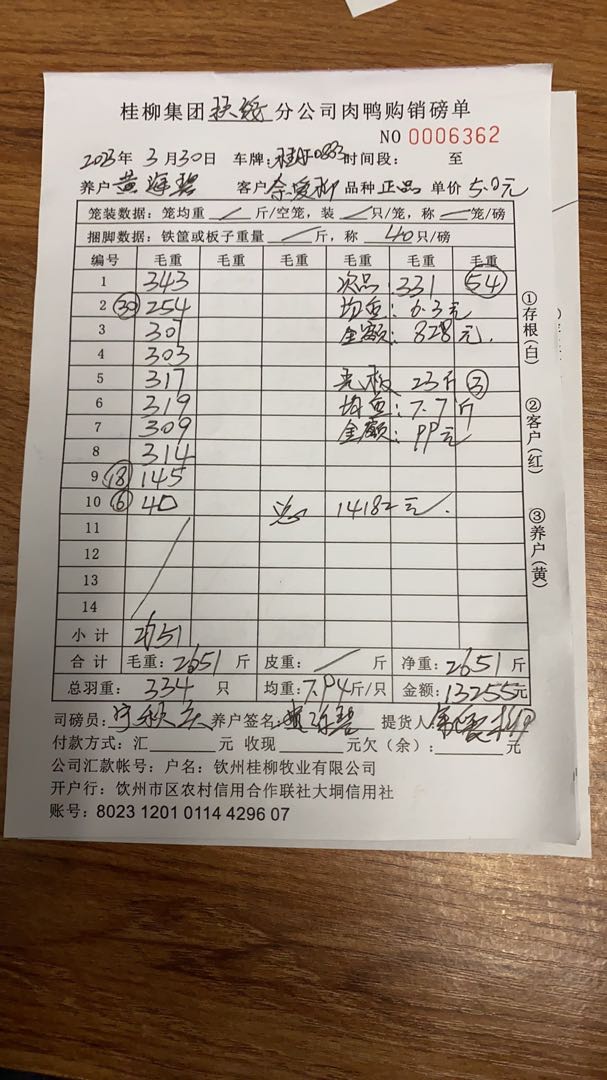 桂柳集团 分公司肉鸭购销磅单
NO 0006362
2023年 3月30日 车牌: 时间段: 至
养户 黄海碧 客户 余爱柳 品种 正品 单价 5.0元
笼装数据: 笼均重 / 斤/空笼, 装 / 只/笼, 称 / 笼/磅
捆脚数据: 铁筐或板子重量 / 斤, 称 40 只/磅
编号 毛重 毛重 毛重 毛重 毛重 毛重
1 343 次品: 331 54
2 30 254 均重: 6.3元
3 307 金额: 828元.
4 303
5 317 光板 23斤 3
6 319 均重: 7.7斤
7 309 金额: 99元
8 314
9 18 145
10 6 40 总 14182元.
11
12
13
14
小计 2651
合计 毛重: 2651 斤 皮重: / 斤 净重: 2651 斤
总羽重: 334 只 均重: 7.94 斤/只 金额: 13255元
司磅员: 养户签名: 黄海碧 提货人: 余爱柳
付款方式: 汇 元 收现 元欠(余): 元
公司汇款帐号: 户名: 钦州桂柳牧业有限公司
开户行: 钦州市区农村信用合作联社大垌信用社
账号: 8023 1201 0114 4296 07
①存根(白)
②客户(红)
③养户(黄)